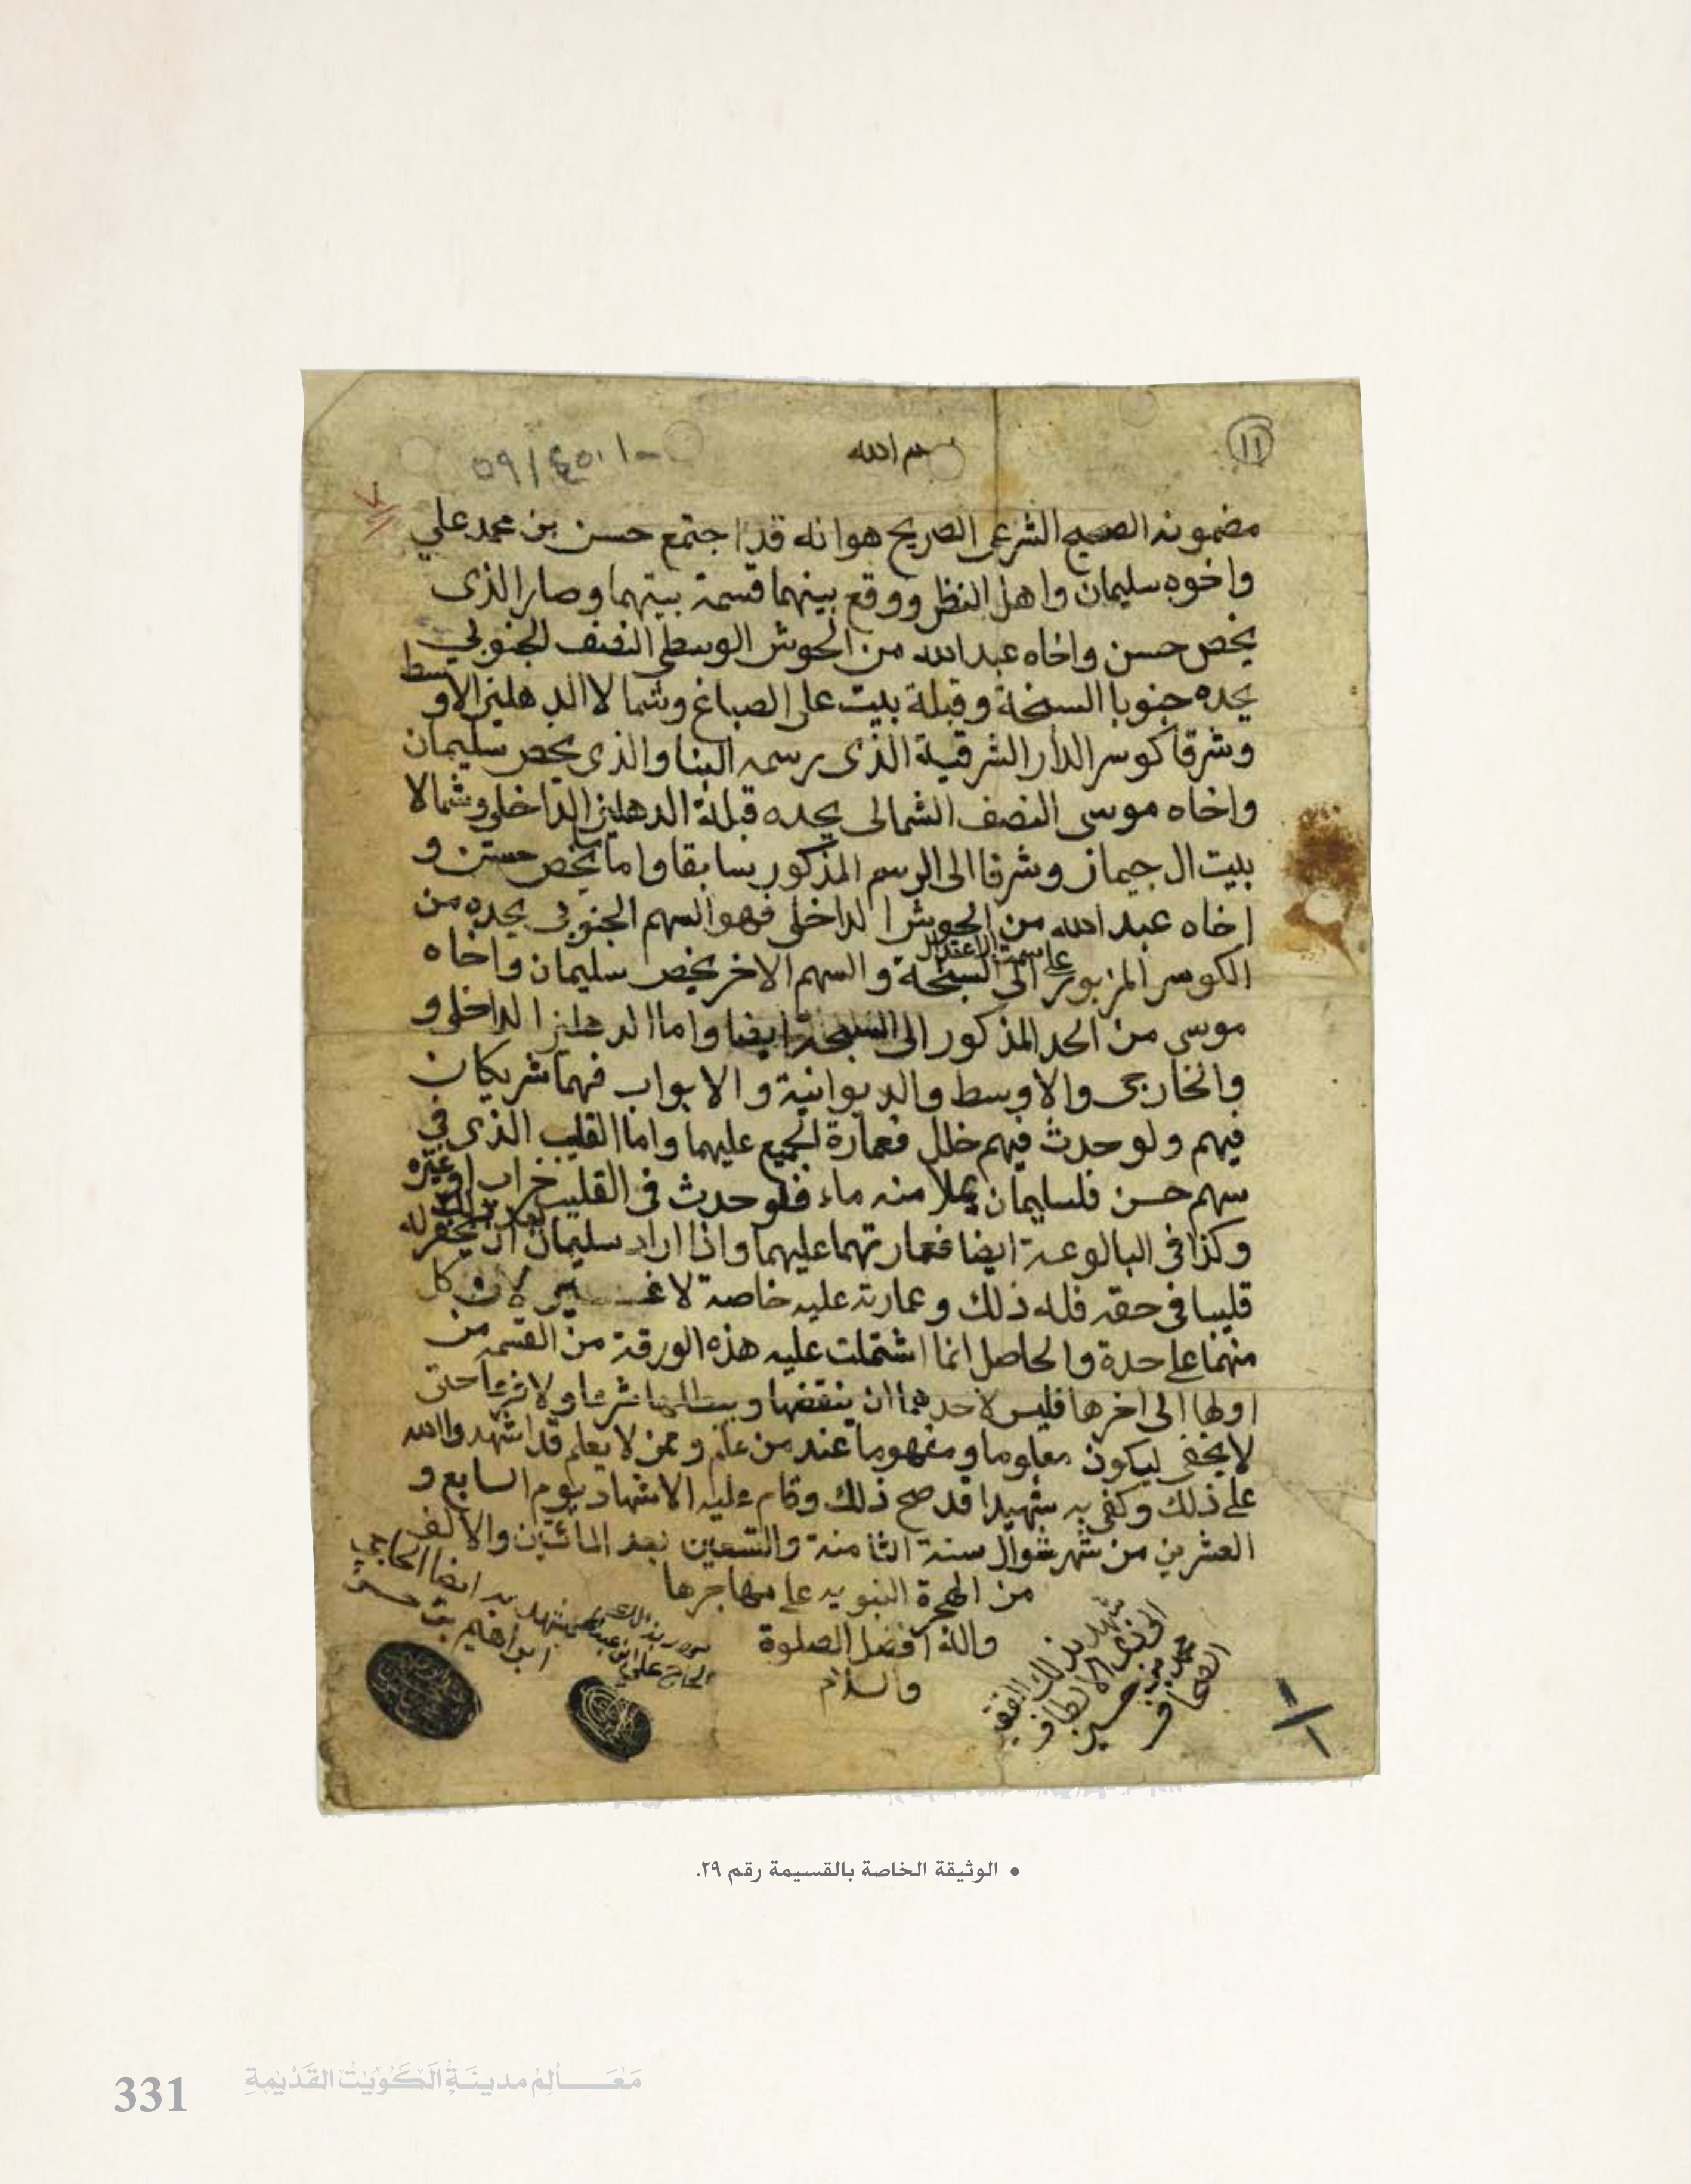 ١١
بسم الله
٥٩/٤٥٠١-
مضمونه الصحيح الشرعي الصريح هو انه قد اجتمع حسن بن محمد علي
واخوه سليمان واهل النظر ووقع بينهما قسمة بيتهما وصار الذى
يخص حسن واخاه عبدالله من الحوش الوسطي النصف الجنوبي
يحده جنوبا السبخة وقبلة بيت على الصباغ وشمالا الدهليز الاوسط
وشرقا كوسر الدار الشرقية الذى رسمه البنا والذى يخص سليمان
واخاه موسى النصف الشمالى يحده قبلة الدهليز الداخلى وشمالا
بيت ال جيماز وشرقا الى الرسم المذكور سابقا واما يخص حسن و
اخاه عبدالله من الحوش الداخلى فهو السهم الجنوبى يحده من
الكوسر المزبور على سمت الاعتدال الى السبخة والسهم الاخر يخص سليمان واخاه
موسى من الحد المذكور الى السبخة ايضا واما الدهليز الداخلى و
والخارجى والاوسط والديوانية والابواب فهما شريكان
فيهم ولو حدث فيهم خلل فعمارة الجميع عليهما واما القليب الذى في
سهم حسن فلسليمان يملا منه ماء فلو حدث فى القليب خراب او غيره
وكذا فى البالوعة ايضا فعمارتهما عليهما واذا اراد سليمان ان يحفر له
قليبا فى حقه فله ذلك وعمارته عليه خاصة لا غير لان كل
منهما على حدة والحاصل انما اشتملت عليه هذه الورقة من القسمه من
اولها الى اخرها فليس لاحدهما ان ينقضها ويبطلها شرعا ولا عرفا حتى
لا يخفى ليكون معلوما ومفهوما عند من علم ومن لا يعلم قد اشهدوا الله
على ذلك وكفى به شهيدا قد صح ذلك وقام عليه الاشهاد يوم السابع و
العشرين من شهر شوال سنة الثامنة والتسعين بعد المائتين والالف
من الهجرة النبويه على مهاجرها
واله افضل الصلوة
والسلام
شهد بذلك الفقير
الى الالطاف
محمد بن حسين
الصحاف
بذلك
الحاج علي ابن
شهد به ايضا الحاجي
ابراهيم بن حسن
• الوثيقة الخاصة بالقسيمة رقم ٢٩.
331 مَعَـالِمُ مدينَةُ الكُوَيْتُ القَدِيْمَةِ